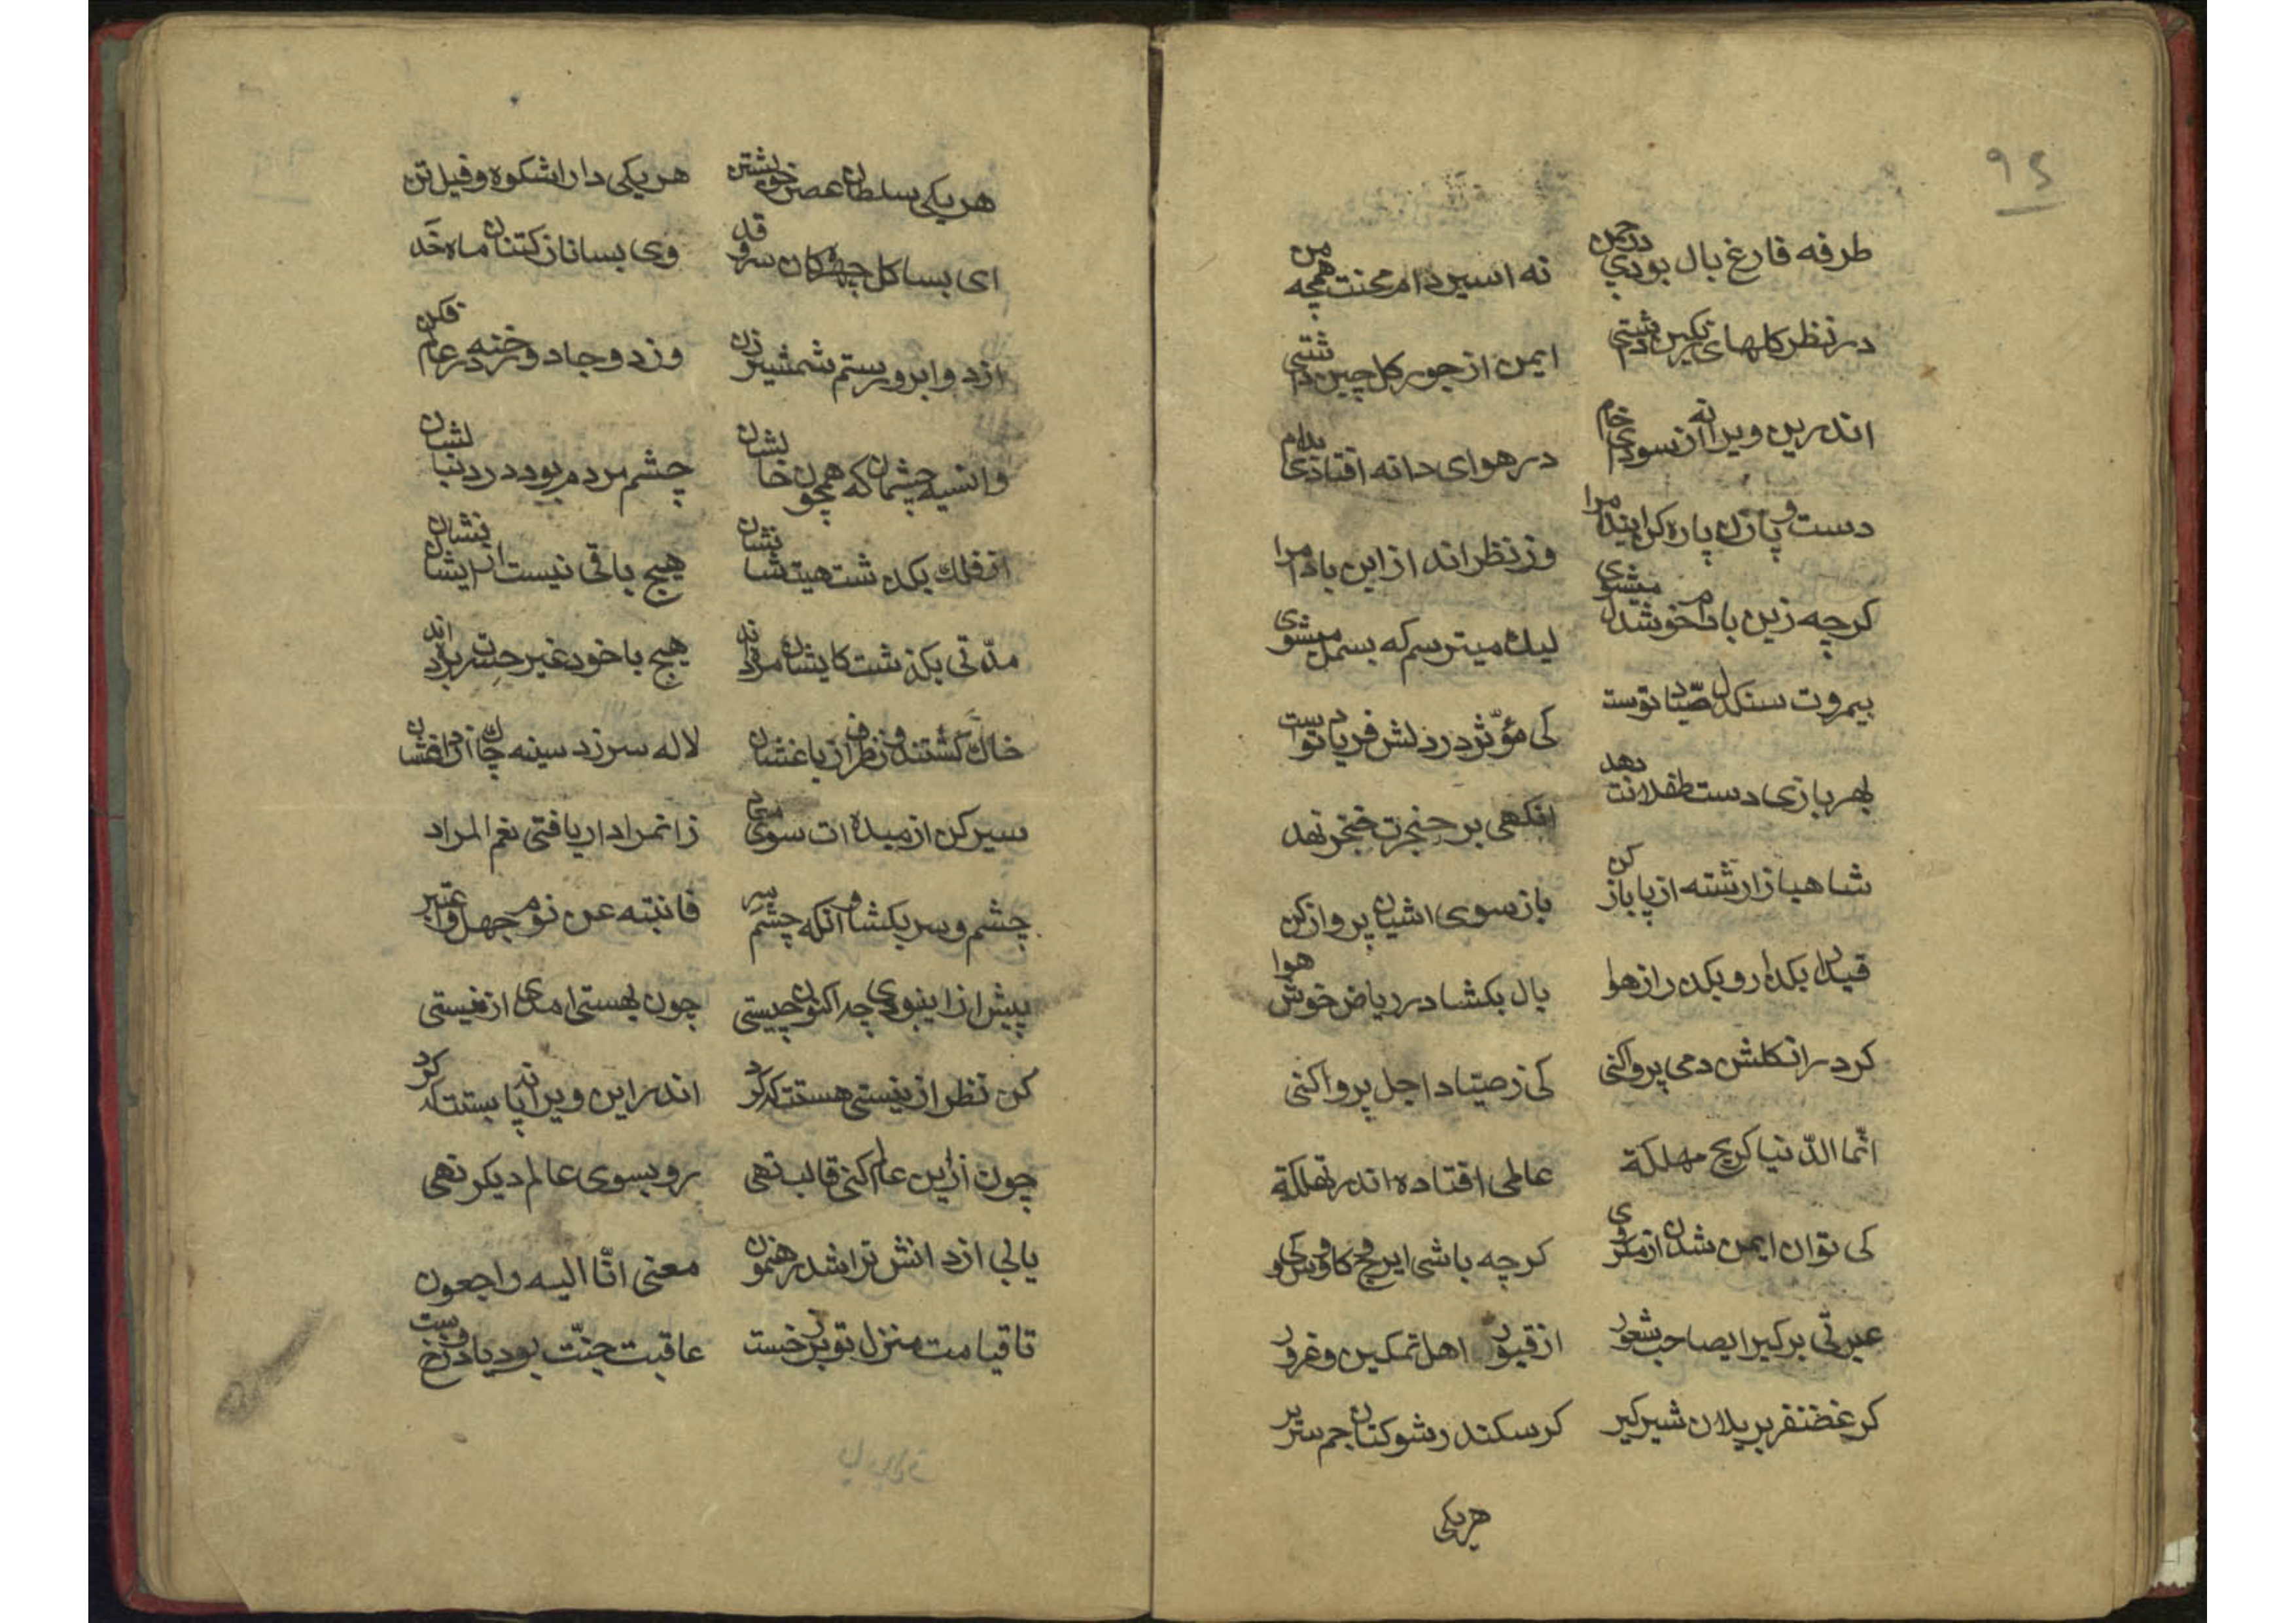 ۹٤
طرفه فارغ بال بودی در چمن نه اسیر دام محنت همچه من
در نظر کلهای رنکین داشتی ایمن از جور کل چین داشتی
اندرین ویرانه از سودای خام در هوای دانه افتادی بدام
دست و پا زن پاره کن این دام را وز نظر انداز این بادام را
کرچه زین بادام خوشدل میشوی لیک میترسم که بسمل میشوی
بیمروت سنکدل صیّاد توست کی مؤثّر در دلش فریاد توست
بهر بازی دست طفلانت دهد انکهی بر حنجرت خنجر نهد
شاهبازا رشته از پا باز کن باز سوی اشیان پرواز کن
قید را بکذار و بکذر از هوا بال بکشا در ریاض خوش هوا
کر در ان کلشن دمی پر وا کنی کی ز صیّاد اجل پروا کنی
انّما الدّنیا کریح مهلکة عالمی افتاده اندر تهلکة
کی توان ایمن شدن از مکر وی کرچه باشی ایرج و کاوس و کی
عبرتی بر کیر ایصاحب شعور از قبور اهل تمکین و غرور
کر غضنفر بر یلان شیر کیر کر سکندر شوکتان جم سریر
هر یکی
هر یکی سلطان عصر خویشتن هر یکی دارا شکوه و فیل تن
ای بسا کل چهرکان سرو قد وی بسا نازکتنان ماه خَد
از دو ابرو رستم شمشیر زن وز دو جادو رخنه در عالم فکن
وانسیه چشمان که همچون خالشان چشم مردم بود در دنبالشان
از فلک بکذشت هیتشان نشان هیچ باقی نیست از ایشان نشان
مدّتی بکذشت کایشان مرده اند هیچ با خود غیر حسرت برده اند
خاک کشتند و ز نظر از باغشان لاله سر زد سینه چاک از داغشان
سیر کن از مبدء ات سوی معاد زانمراد ار یافتی نعم المراد
چشم و سر بکشا و انکه چشم سر فانتبه عن نوم جهل و اعتبر
پیش از این بودی چه اکنون چیستی چون بهستی امدی از نیستی
کن نظر از نیستی هستت که کرد اندر این ویرانه پا بستت که کرد
چون از این عالم کنی قالب تهی رو بسوی عالم دیکر نهی
یابی از دانش ترا شد رهنمون معنی انّا الیه راجعون
تا قیامت منزل تو برزخست عاقبت جنّت بود یا دوزخست